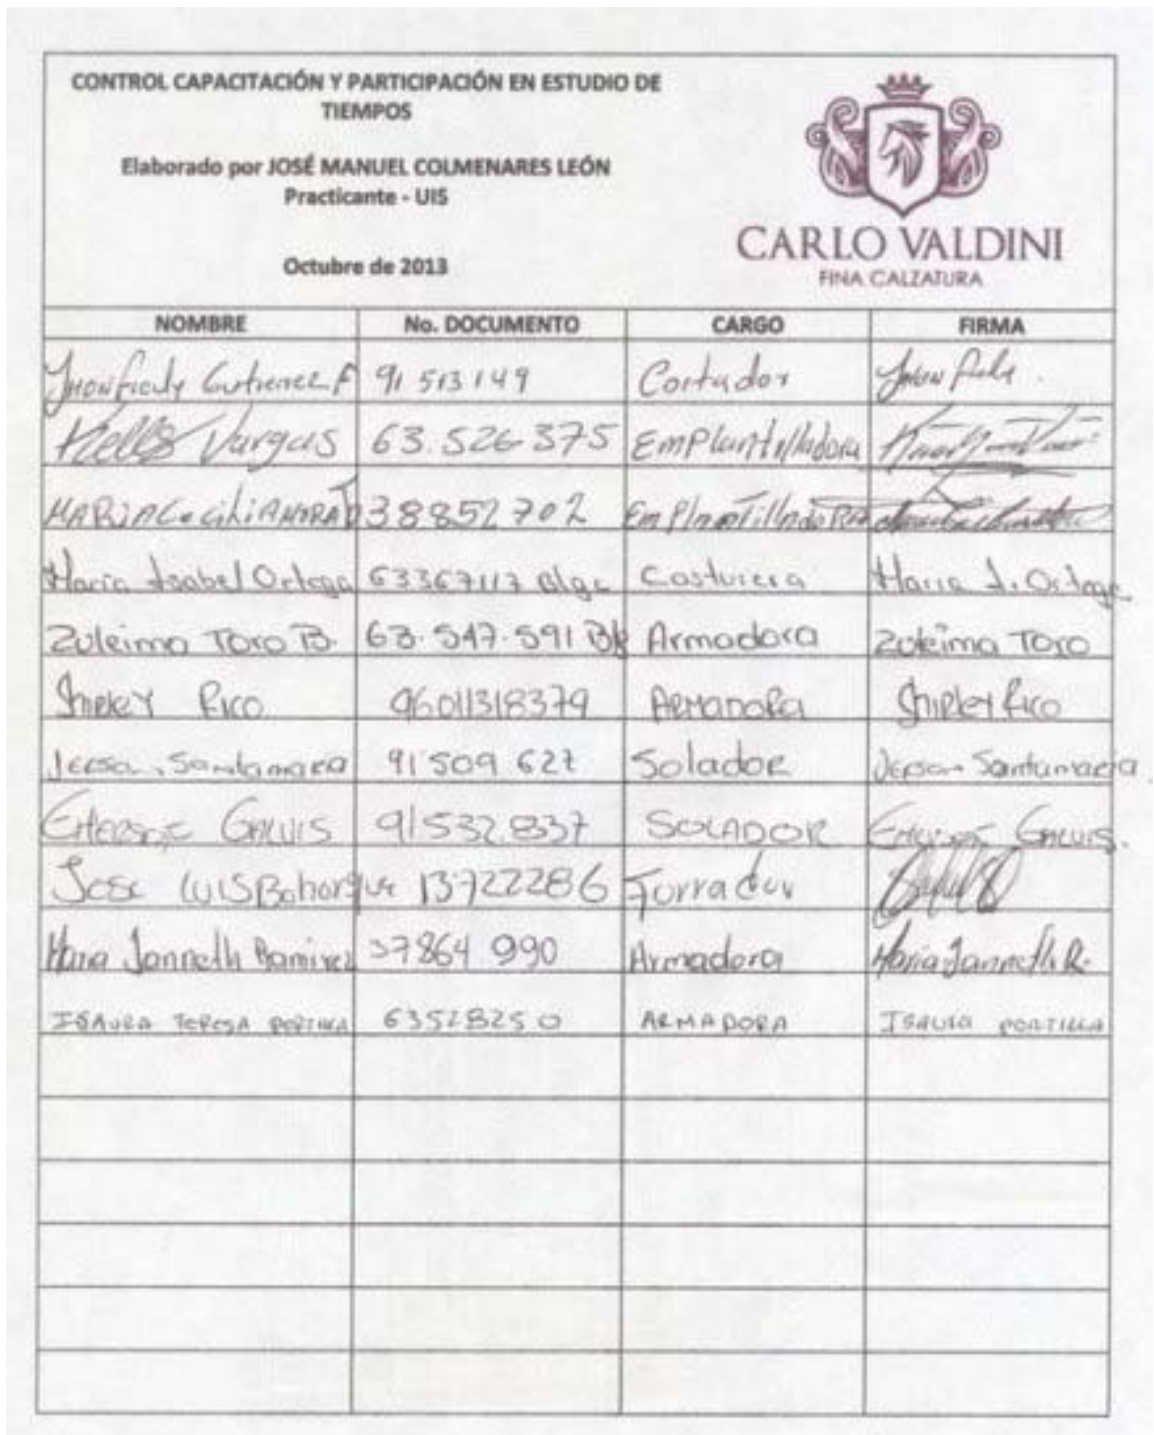 CONTROL CAPACITACIÓN Y PARTICIPACIÓN EN ESTUDIO DE
TIEMPOS
Elaborado por JOSÉ MANUEL COLMENARES LEÓN
Practicante - UIS
Octubre de 2013
CARLO VALDINI
FINA CALZATURA
NOMBRE No. DOCUMENTO CARGO FIRMA
Gutierrez F 91 513 149 Cortador
Kelly Vargas 63.526 375 EmPlantilladora
MARIA CeciliA MORA 38852702 EmPlanTilladoRA
Maria Isabel Ortega 63367117 Blga Costurera Maria I. Ortega
Zuleima Toro B. 63.547.591 Armadora Zuleima Toro
Shirley Rico 96011318379 ARMADORA Shirley Rico
Jerson Santamaria 91'509 627 Solador Jerson Santamaria
GALVIS 91532.837 SOLADOR GALVIS.
Jose LUIS Bohorquez 13722286 Forrador
Maria Janneth Ramirez 37864.990 Armadora Maria Janneth R.
ISAURA TERESA PORTILLA 63528250 ARMADORA ISAURA PORTILLA